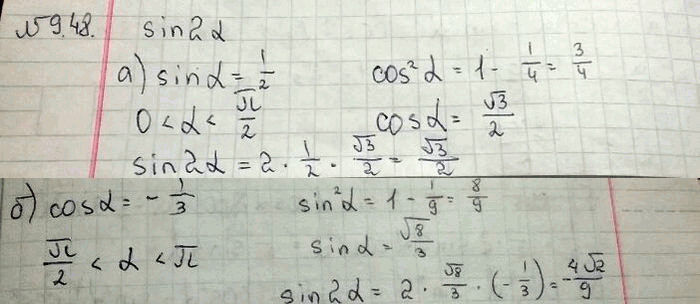 № 9.48. sin2α
а) sinα = 1/2 cos²α = 1 - 1/4 = 3/4
0 < α < π/2 cosα = √3/2
sin2α = 2 · 1/2 · √3/2 = √3/2
б) cosα = - 1/3 sin²α = 1 - 1/9 = 8/9
π/2 < α < π sinα = √8/3
sin2α = 2 · √8/3 · (-1/3) = -4√2/9